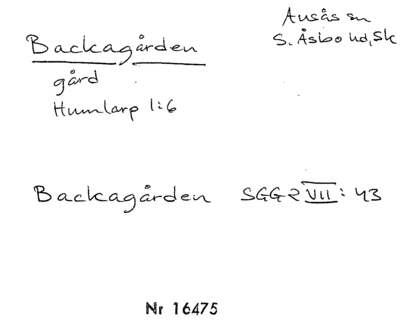 Backagården
Ausås sn
S. Åsbo hd, Sk
gård
Humlarp 1:6
Backagården SGG 2 VII: 43
Nr 16475